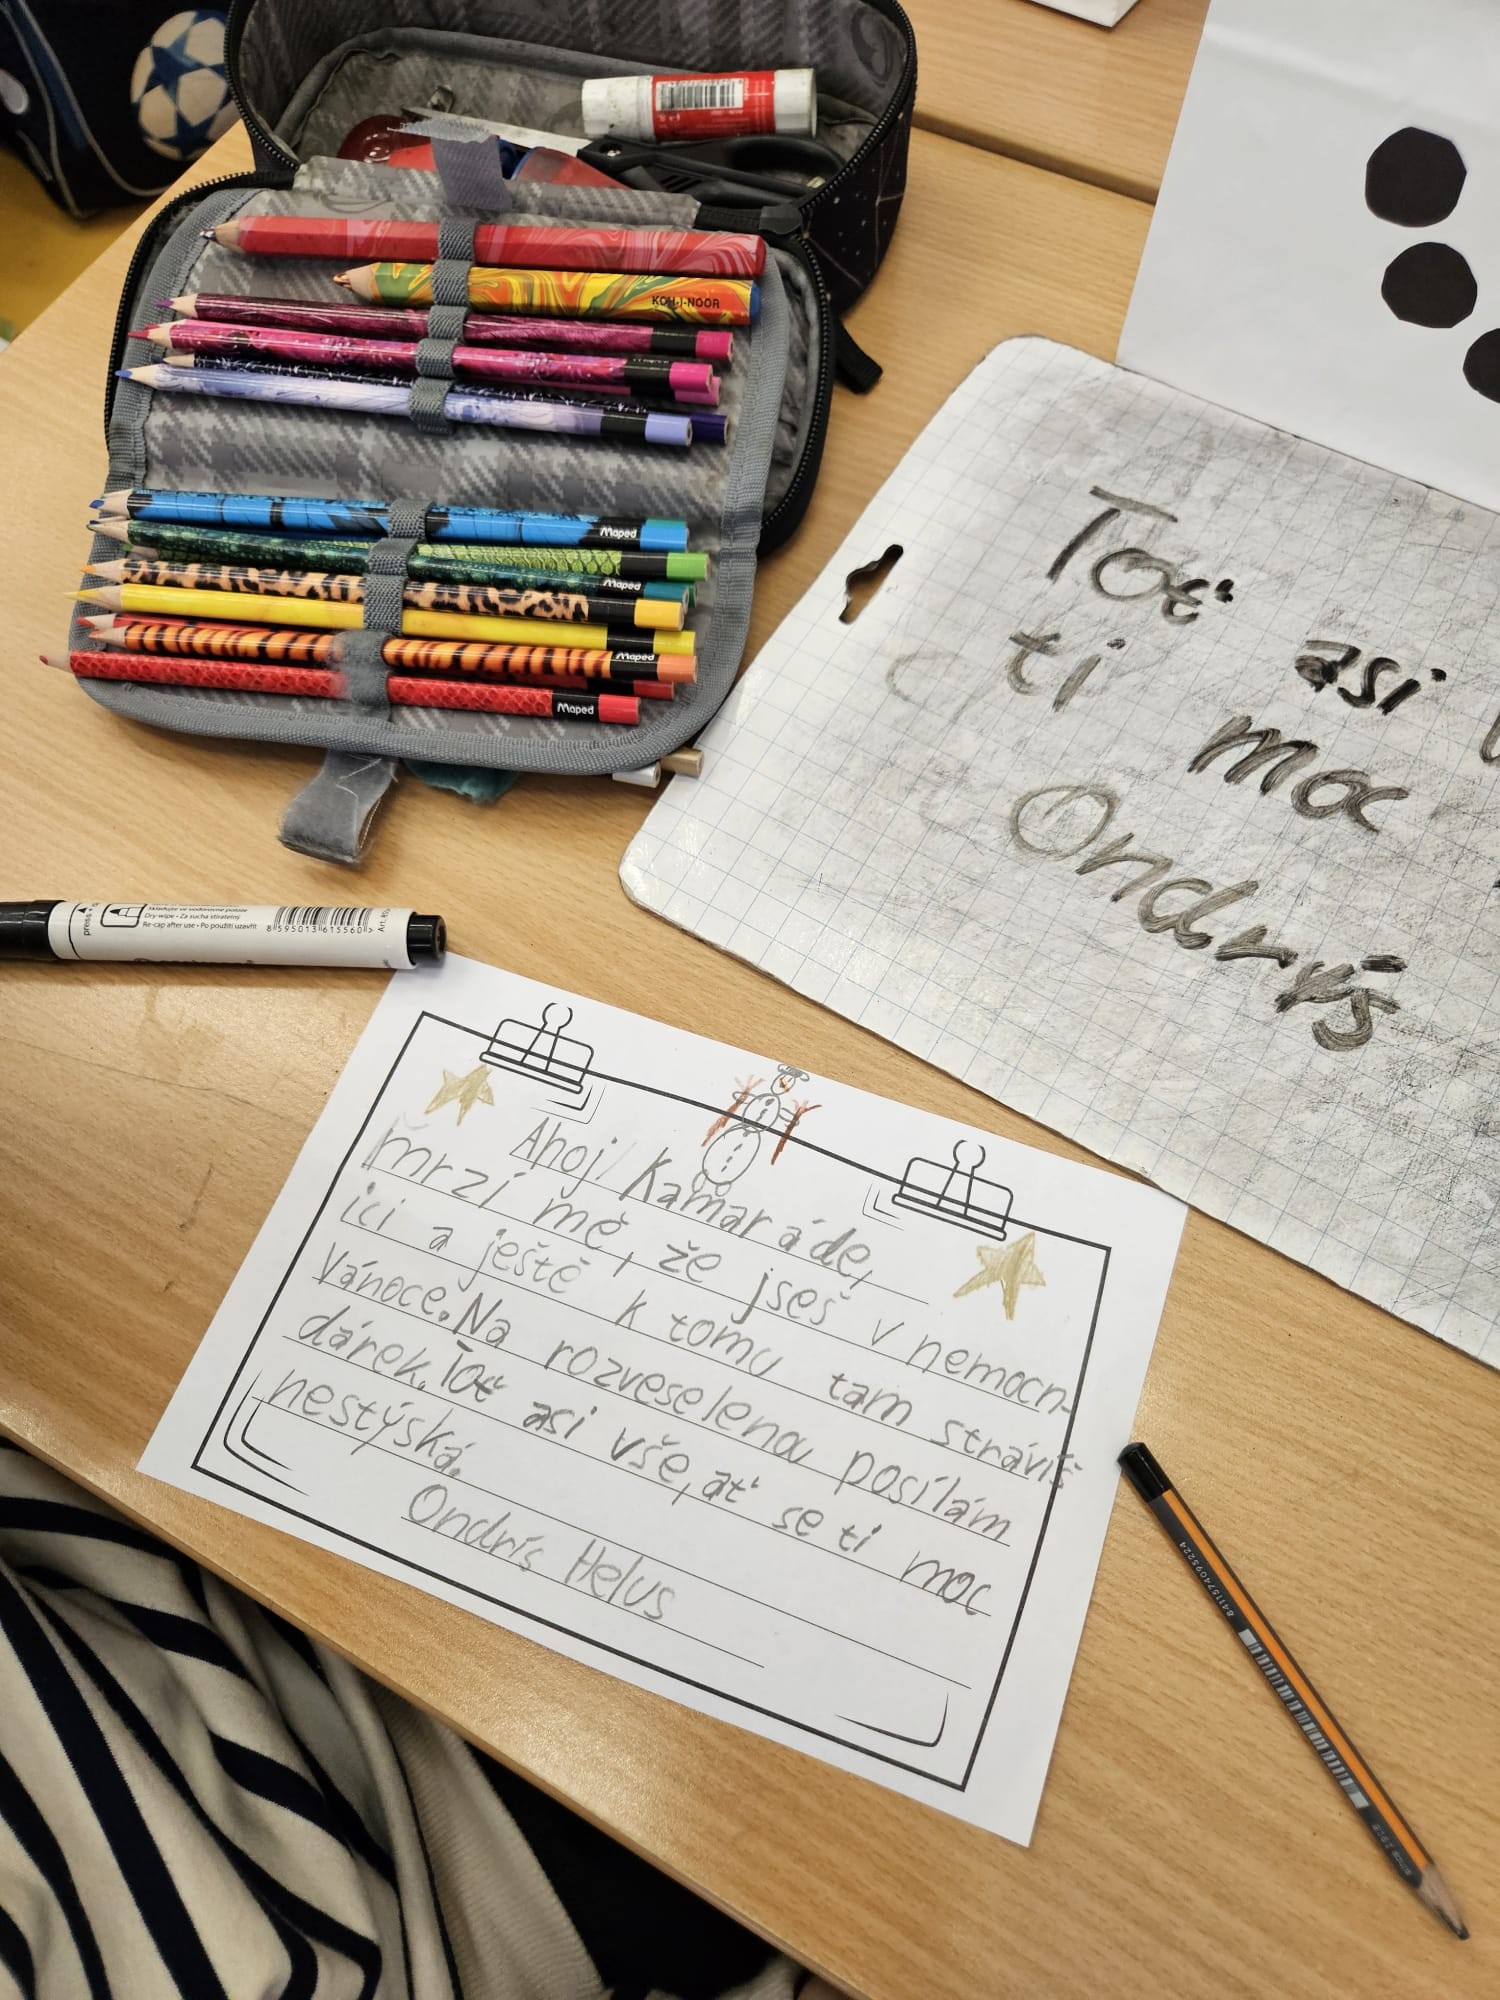 KOH-I-NOOR
Maped
Maped
Maped
Maped
Toť asi
ti moc
Ondrís
Skladujte ve vodorovné poloze
Dry-wipe • Za sucha stíratelný
Re-cap after use • Po použití uzavřít
8 595013 615560 >
press
Ahoj Kamaráde,
mrzí mě, že jseš v nemocn-
ici a ještě k tomu tam strávíš
Vánoce. Na rozveselena posílám
dárek. Toť asi vše, ať se ti moc
nestýská.
Ondrís Helus
8411574095224